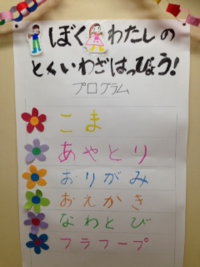 ぼく わたしの
とくいわざはっぴょう!
プログラム
こま
あやとり
おりがみ
おえかき
なわとび
フラフープ